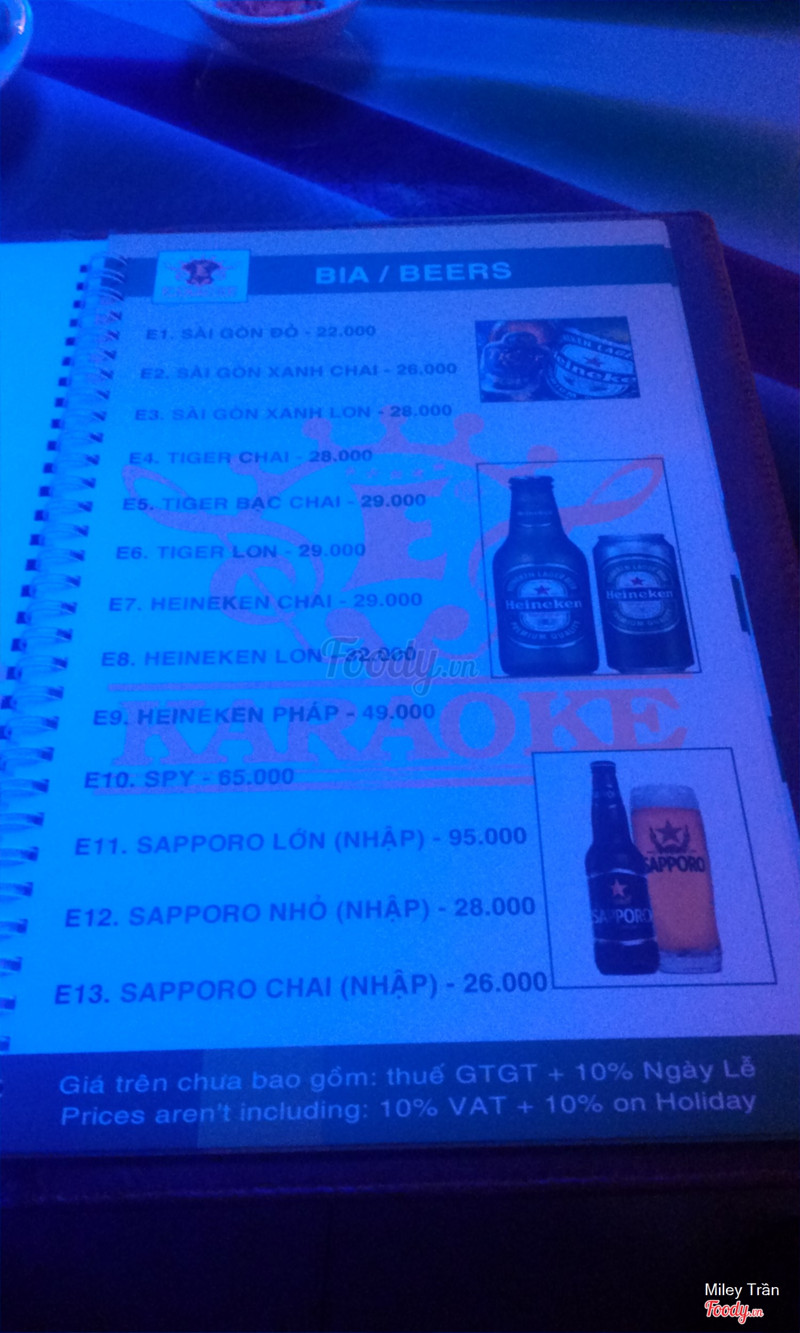 BIA / BEERS
E1. SÀI GÒN ĐỎ - 22.000
E2. SÀI GÒN XANH CHAI - 26.000
E3. SÀI GÒN XANH LON - 28.000
E4. TIGER CHAI - 28.000
E5. TIGER BẠC CHAI - 29.000
E6. TIGER LON - 29.000
E7. HEINEKEN CHAI - 29.000
E8. HEINEKEN LON -
E9. HEINEKEN PHÁP - 49.000
E10. SPY - 65.000
E11. SAPPORO LỚN (NHẬP) - 95.000
E12. SAPPORO NHỎ (NHẬP) - 28.000
E13. SAPPORO CHAI (NHẬP) - 26.000
KARAOKE
Foody.vn
Heineken
PREMIUM QUALITY
Heineken
SAPPORO
SAPPORO
Giá trên chưa bao gồm: thuế GTGT + 10% Ngày Lễ
Prices aren't including: 10% VAT + 10% on Holiday
Miley Trần
Foody.vn